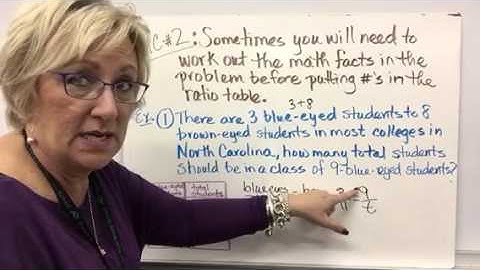 C#2: Sometimes you will need to
work out the math facts in the
problem before putting #'s in the
ratio table.
3+8
Ex. ① There are 3 blue-eyed students to 8
brown-eyed students in most colleges in
North Carolina, how many total students
should be in a class of 9-blue-eyed students?
total
students
blue eyes
3 = 9
11 t